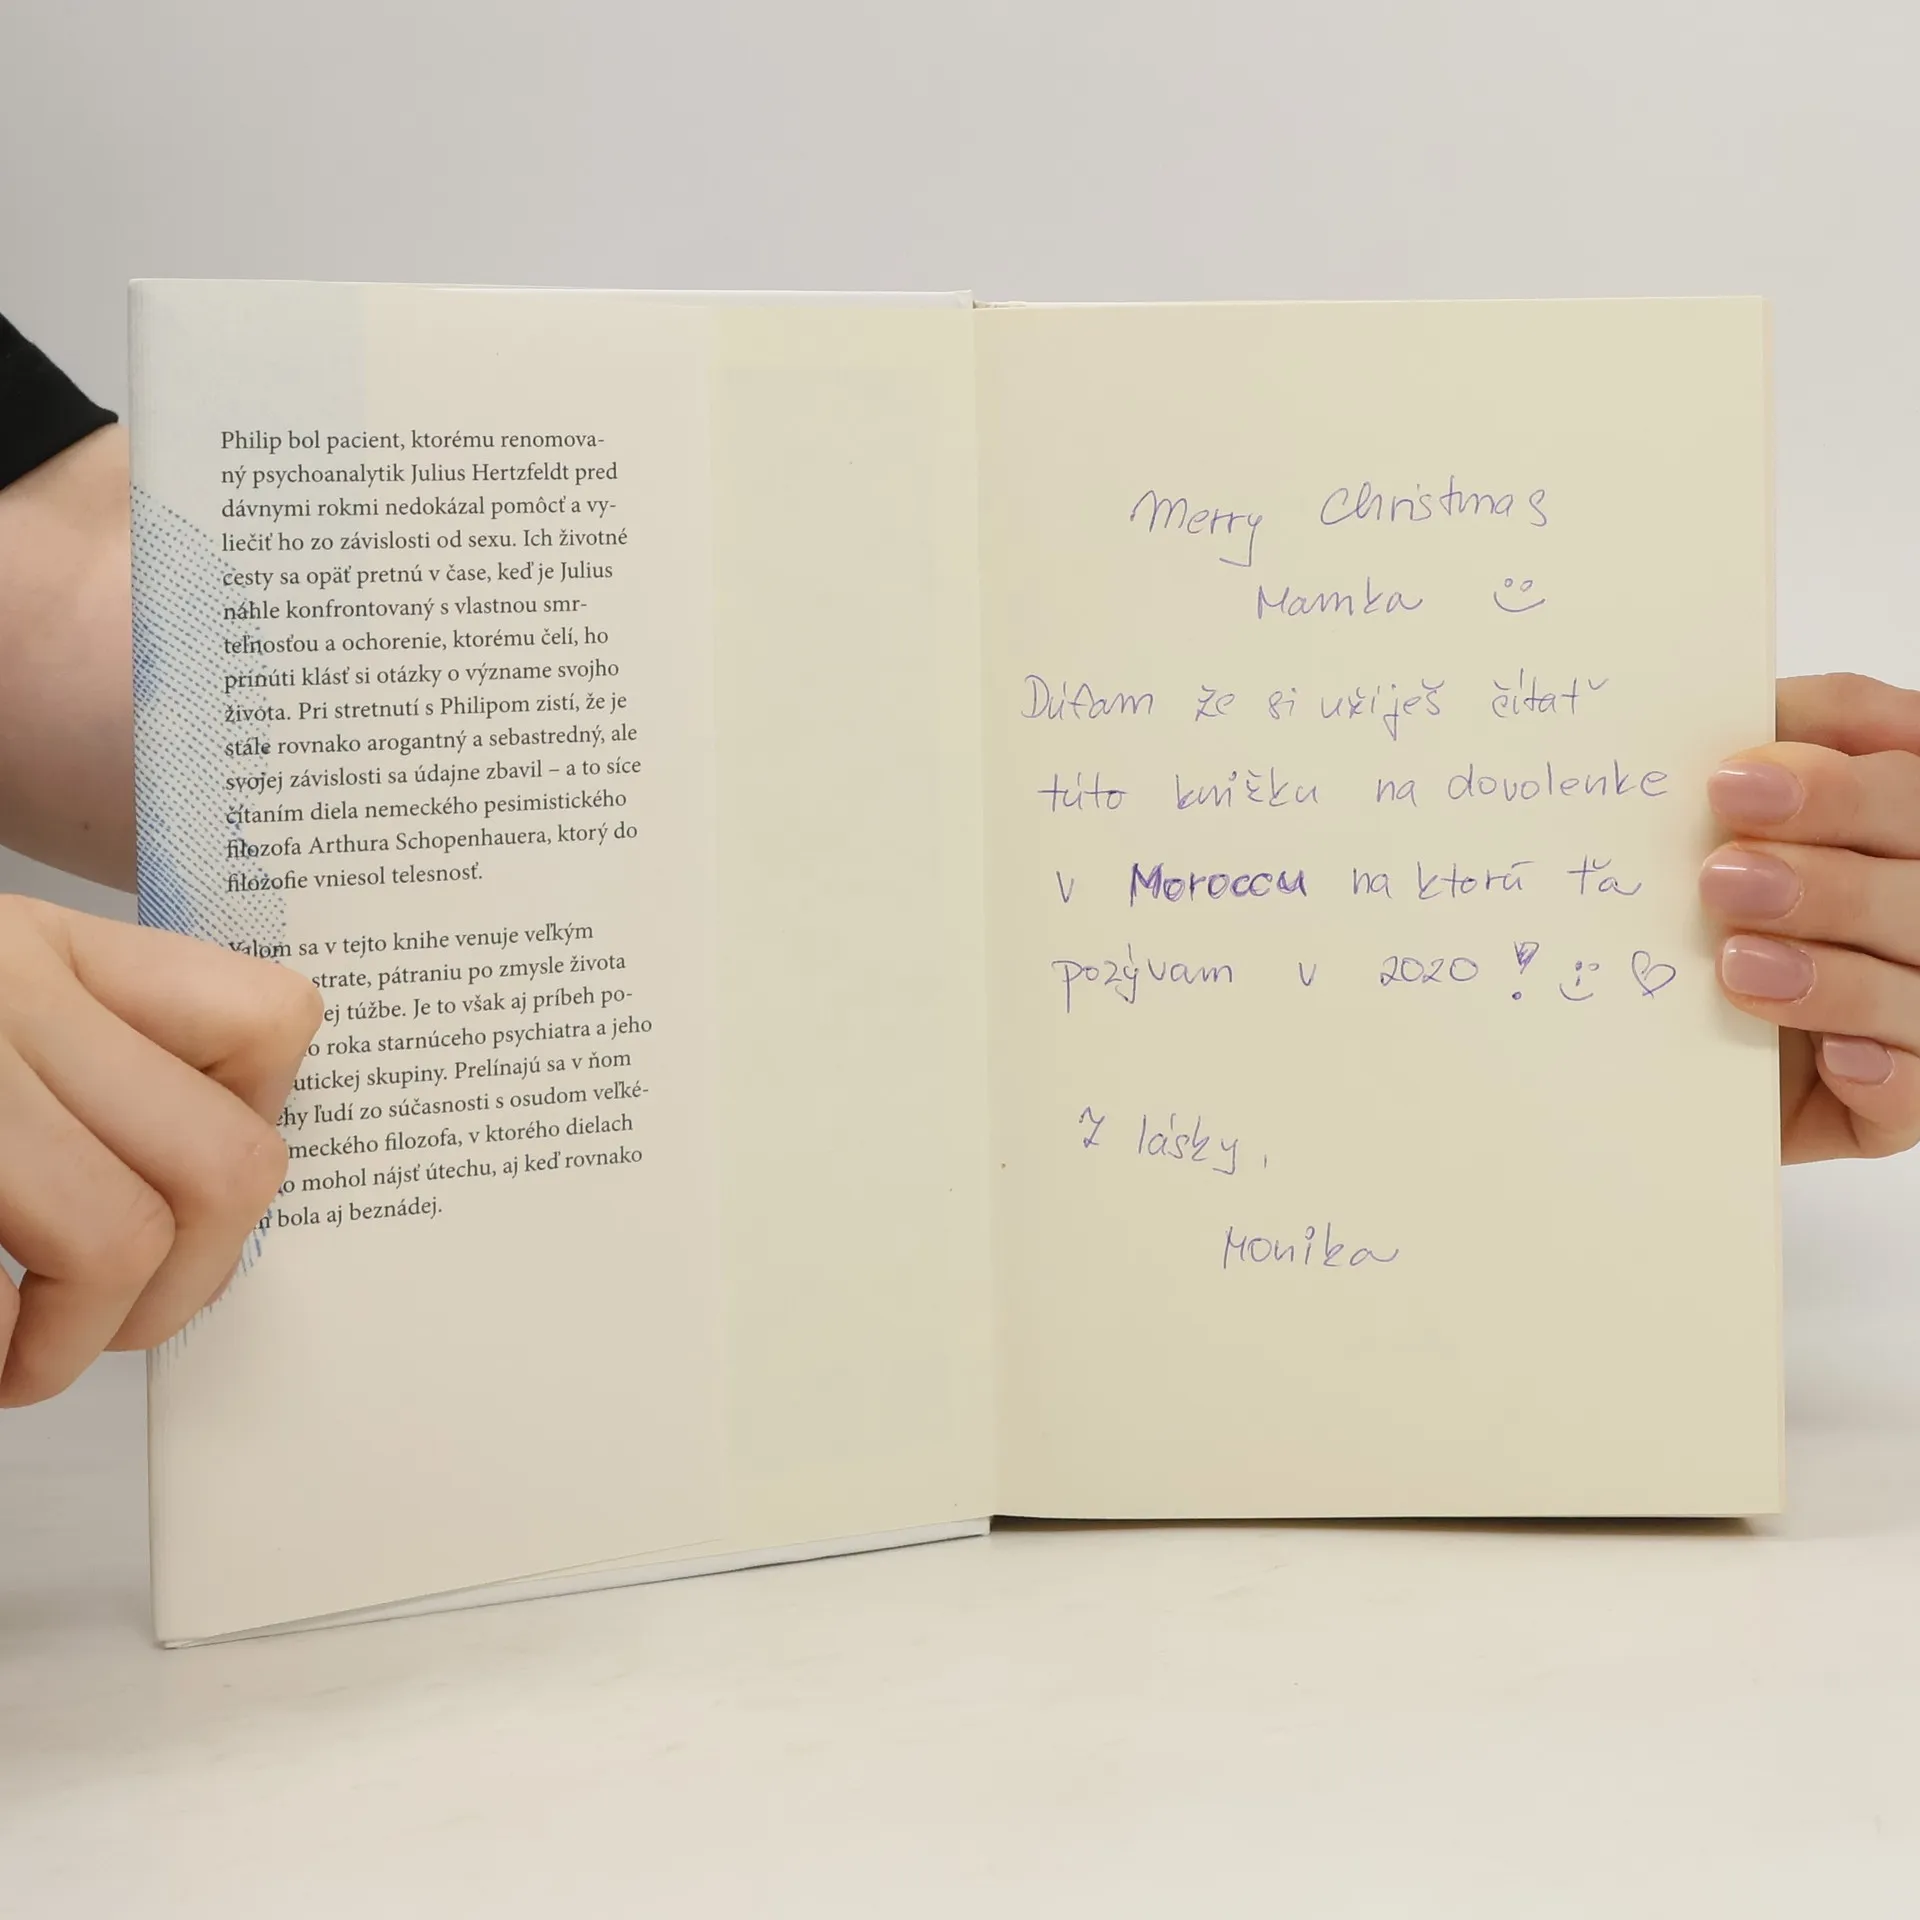 Philip bol pacient, ktorému renomova-
ný psychoanalytik Julius Hertzfeldt pred
dávnymi rokmi nedokázal pomôcť a vy-
liečiť ho zo závislosti od sexu. Ich životné
cesty sa opäť pretnú v čase, keď je Julius
náhle konfrontovaný s vlastnou smr-
teľnosťou a ochorenie, ktorému čelí, ho
prinúti klásť si otázky o význame svojho
života. Pri stretnutí s Philipom zistí, že je
stále rovnako arogantný a sebastredný, ale
svojej závislosti sa údajne zbavil – a to síce
čítaním diela nemeckého pesimistického
filozofa Arthura Schopenhauera, ktorý do
filozofie vniesol telesnosť.
Yalom sa v tejto knihe venuje veľkým
strate, pátraniu po zmysle života
ej túžbe. Je to však aj príbeh po-
o roka starnúceho psychiatra a jeho
utickej skupiny. Prelínajú sa v ňom
ehy ľudí zo súčasnosti s osudom veľké-
meckého filozofa, v ktorého dielach
o mohol nájsť útechu, aj keď rovnako
bola aj beznádej.
Merry Christmas
Mamka
Dúfam že si užiješ čítať
túto knižku na dovolenke
v Moroccu na ktorú ťa
pozývam v 2020 !
Z lásky,
Monika